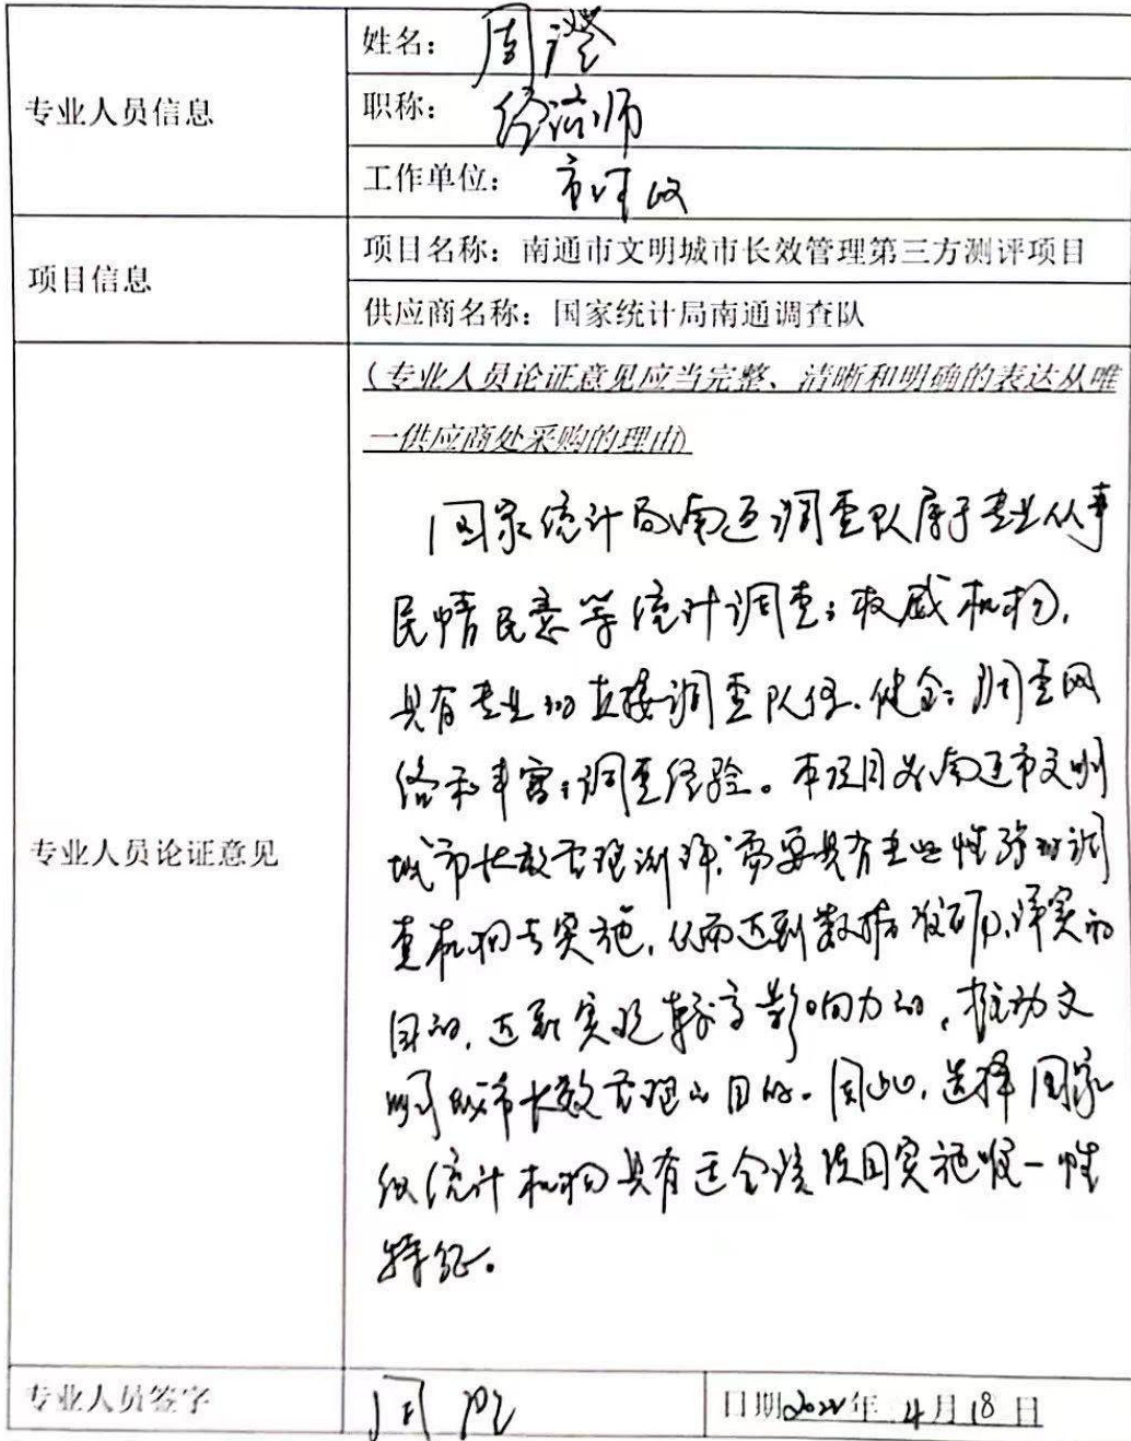 专业人员信息
姓名：周澄
职称：经济师
工作单位：市财政
项目信息
项目名称：南通市文明城市长效管理第三方测评项目
供应商名称：国家统计局南通调查队
专业人员论证意见
（专业人员论证意见应当完整、清晰和明确的表达从唯
一供应商处采购的理由）
国家统计局南通调查队属于专业从事
民情民意等统计调查的权威机构，
具有专业的直接调查队伍、健全的调查网
络和丰富的调查经验。本项目为南通市文明
城市长效管理测评，需要具有专业性强的调
查机构去实施，从而达到数据准确、详实的
目的，达到实现较高影响力的，推动文
明城市长效管理的目的。因此，选择国家
级统计机构具有适合该项目实施唯一性
特征。
专业人员签字
周澄
日期2022年 4月18日